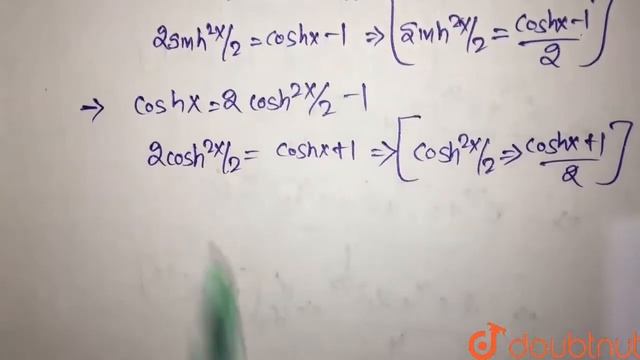 2sinh²x/2 = coshx - 1 ⇒ [sinh²x/2 = coshx-1/2]
→ coshx = 2 cosh²x/2 - 1
2cosh²x/2 = coshx + 1 ⇒ [cosh²x/2 ⇒ coshx+1/2]
doubtnut